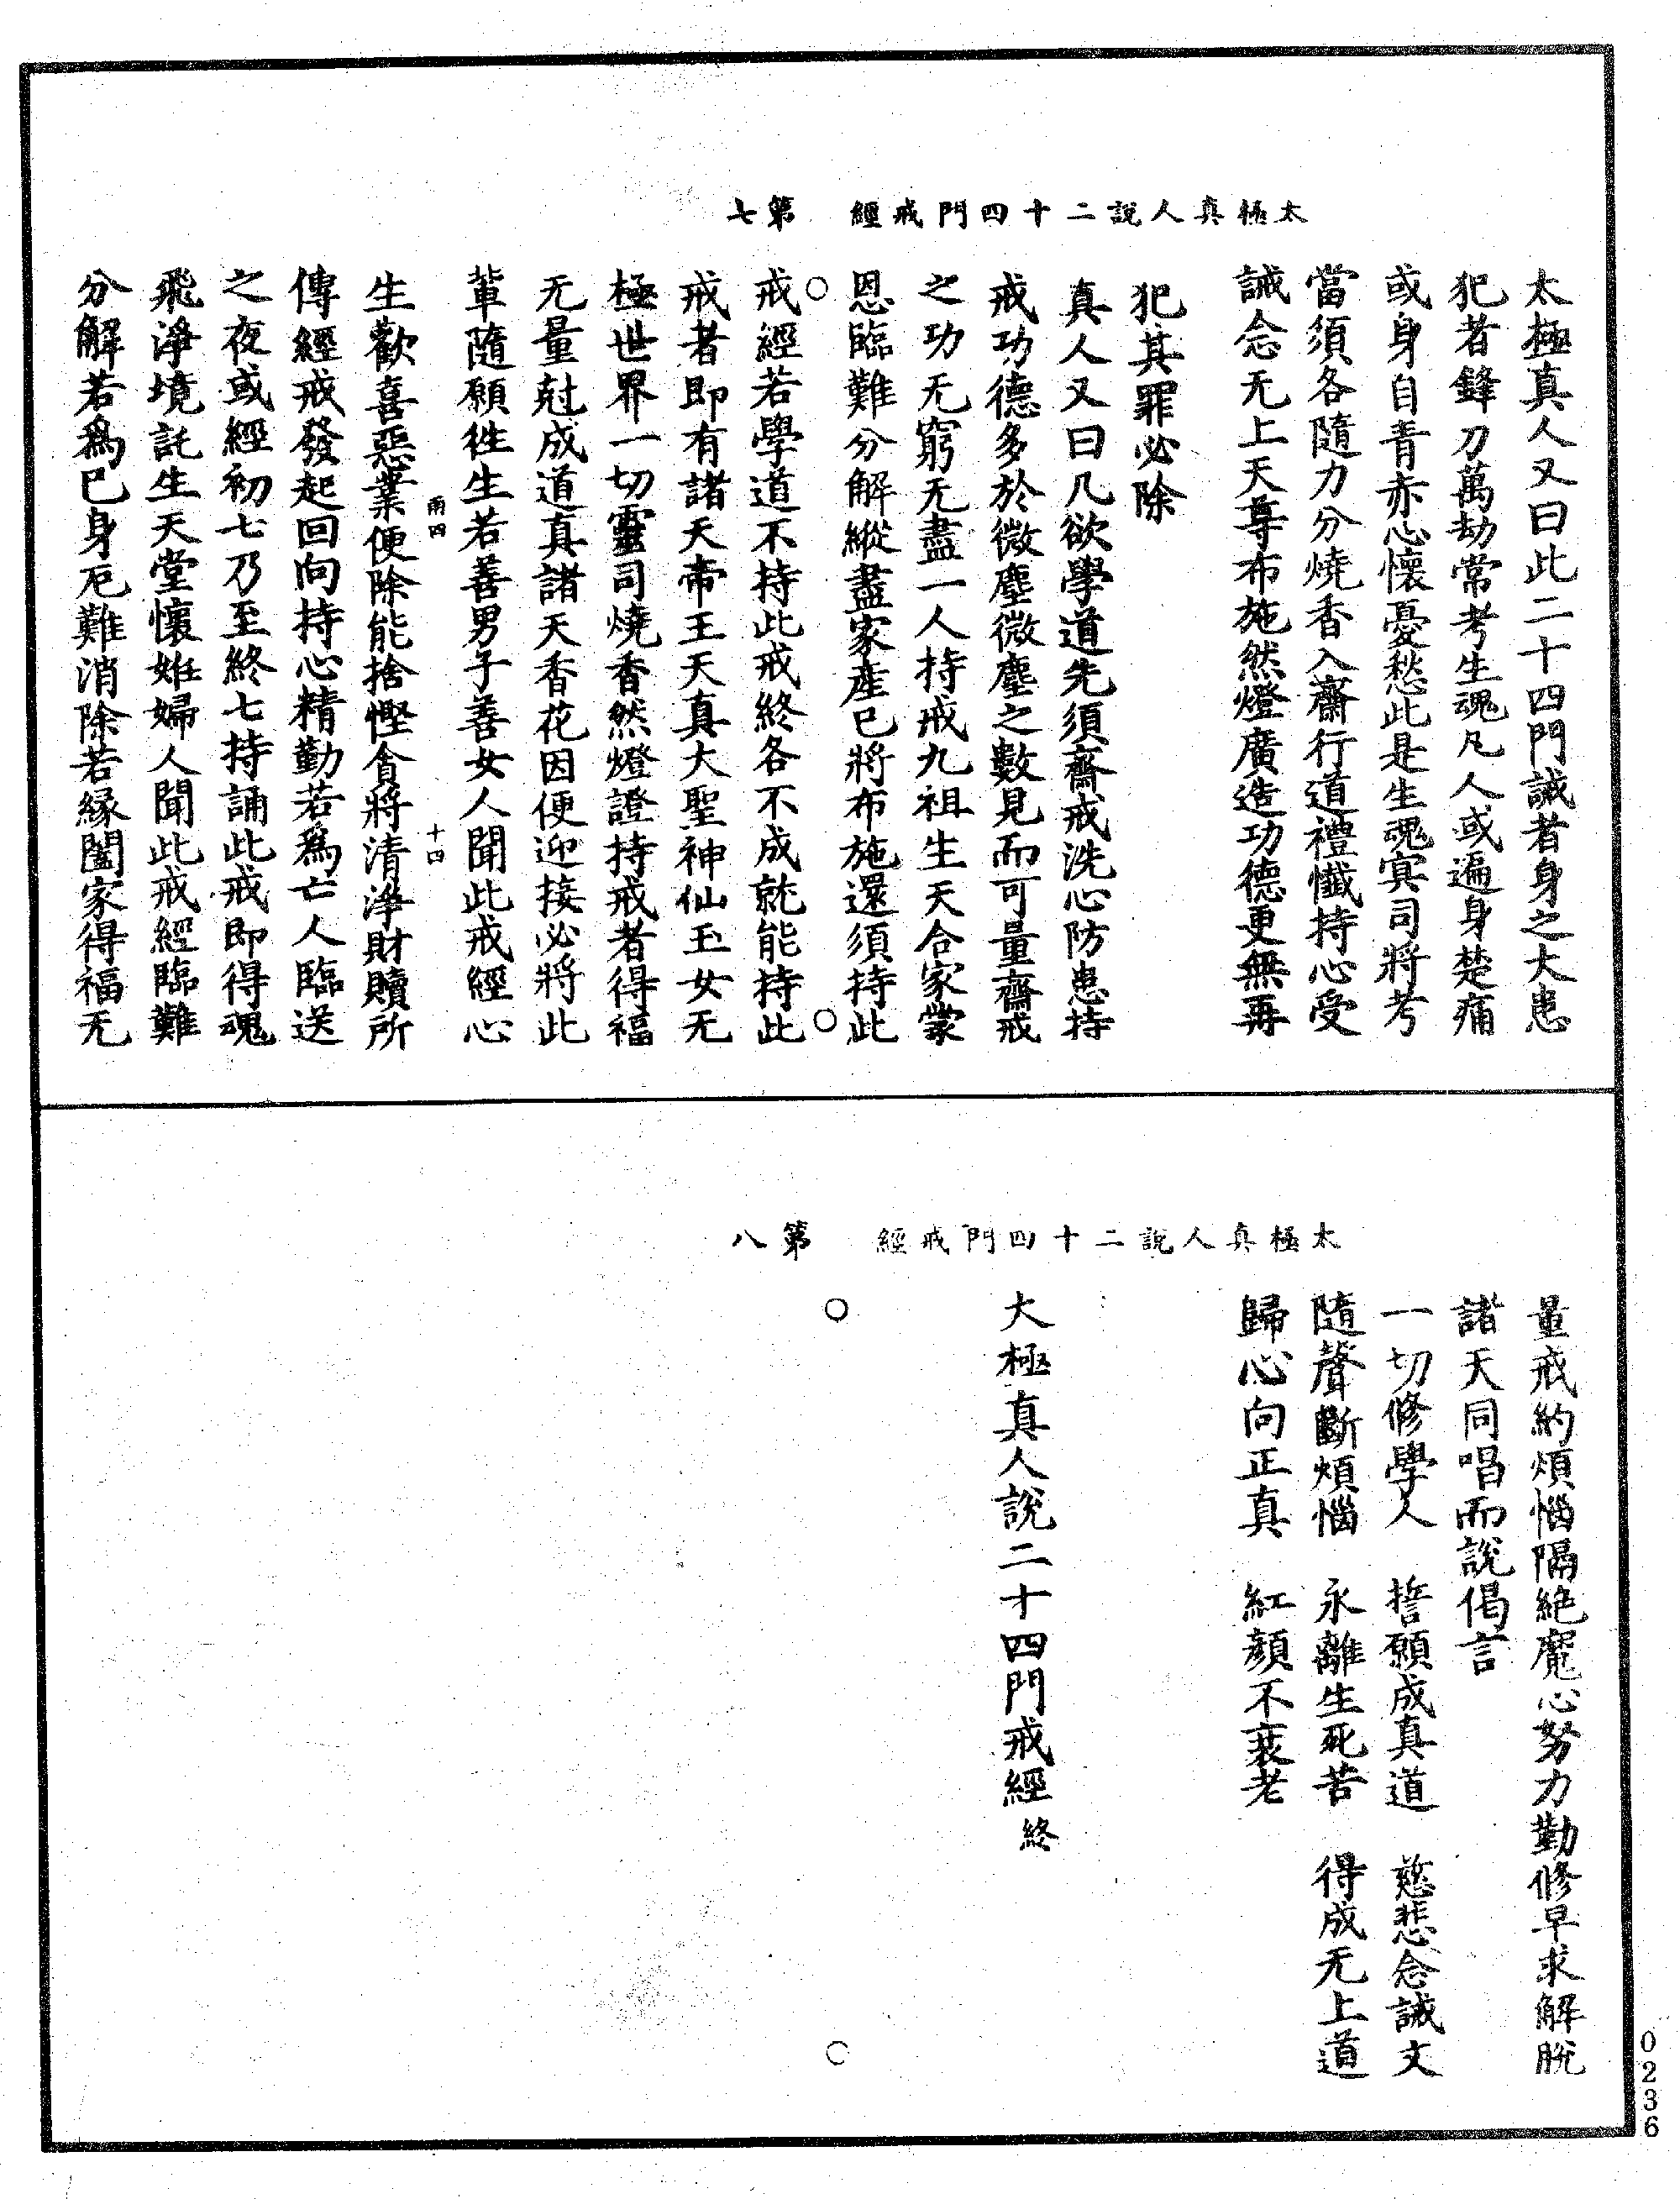 太極真人說二十四門戒經　第七
太極真人又曰此二十四門誡者身之大患
犯者鋒刀萬劫常考生魂凡人或遍身楚痛
或身自青赤心懷憂愁此是生魂㝠司將考
當須各隨力分燒香入齋行道禮懺持心受
誡念无上天尊布施然燈廣造功德更無再
犯其罪必除
真人又曰凡欲學道先須齋戒洗心防患持
戒功德多於微塵微塵之數見而可量齋戒
之功无窮无盡一人持戒九祖生天合家蒙
恩臨難分解縱盡家產已將布施還須持此
戒經若學道不持此戒終各不成就能持此
戒者即有諸天帝王天真大聖神仙玉女无
極世界一切靈司燒香然燈證持戒者得福
无量尅成道真諸天香花因便迎接必將此
輩隨願徃生若善男子善女人聞此戒經心
雨四　十四
生歡喜惡業便除能捨慳貪將清淨財贖所
傳經戒發起回向持心精勤若爲亡人臨送
之夜或經初七乃至終七持誦此戒即得魂
飛淨境託生天堂懷姙婦人聞此戒經臨難
分解若爲己身厄難消除若緣闔家得福无
太極真人說二十四門戒經　第八
量戒約煩惱隔絶魔心努力勤修早求解脫
諸天同唱而說偈言
一切修學人　誓願成真道　慈悲念誡文
隨聲斷煩惱　永離生死苦　得成无上道
歸心向正真　紅顏不衰老
大極真人說二十四門戒經終
0236